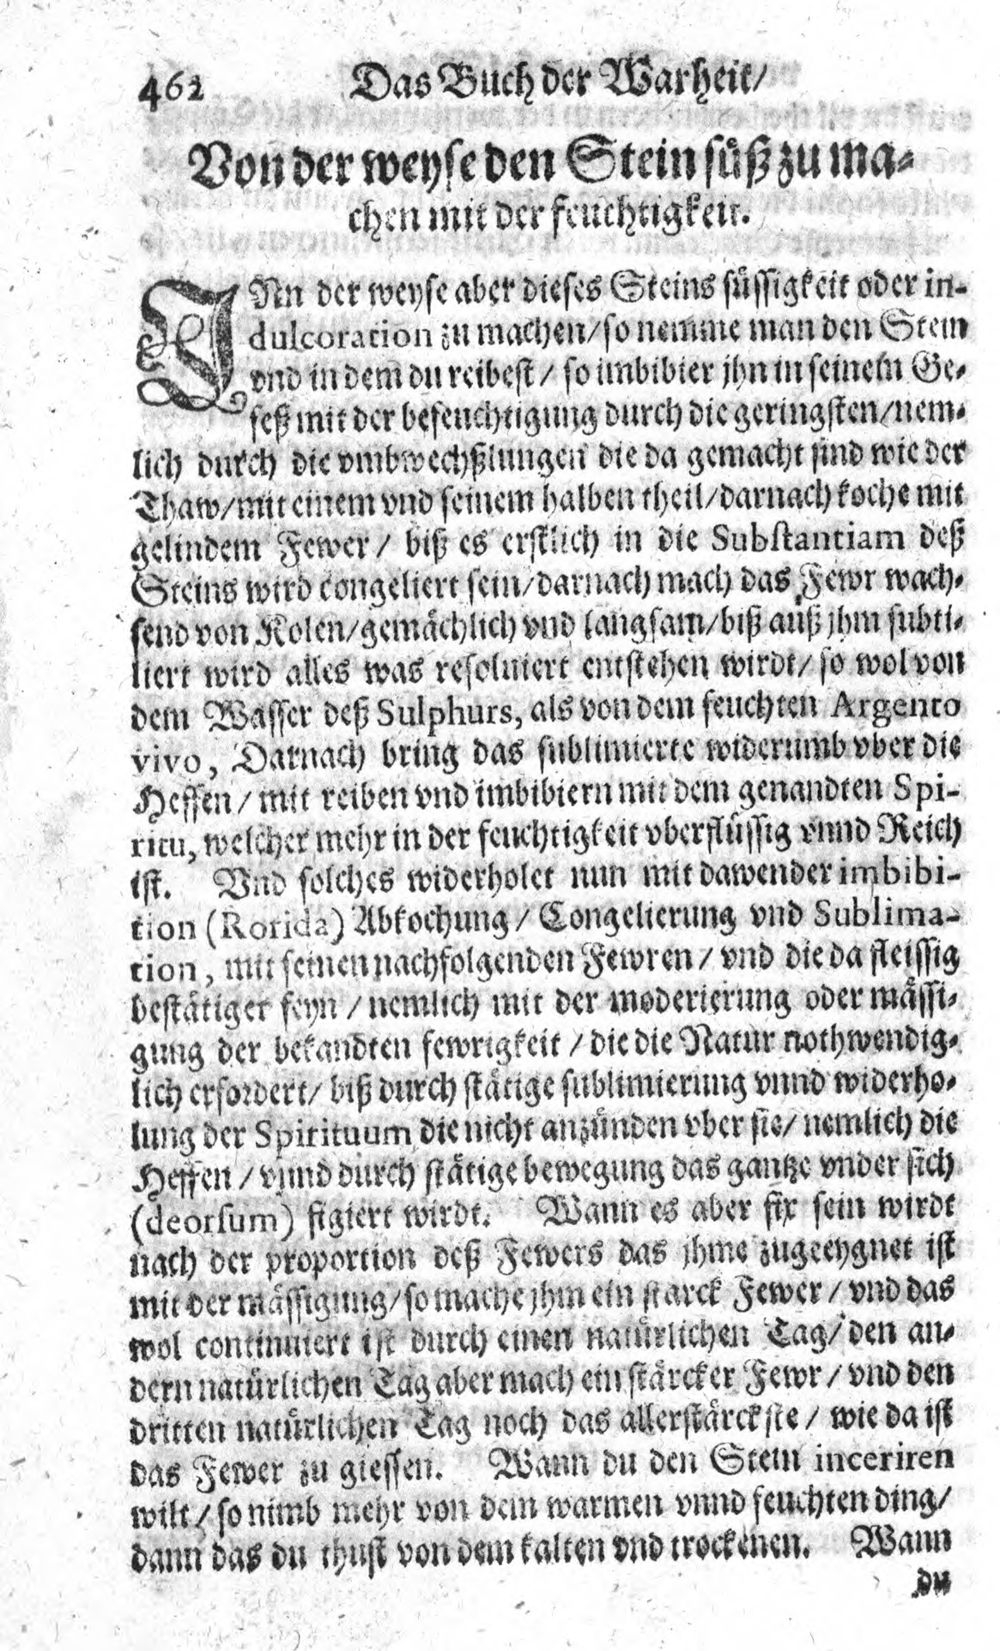 462 Das Buch der Warheit/
Von der weyse den Stein süß zu ma-
chen mit der feuchtigkeit.
INn der weyse aber dieses Steins süssigkeit oder in-
dulcoration zu machen/so nemme man den Stein
vnd in dem du reibest/ so imbibier jhn in seinem Ge-
feß mit der befeuchtigung durch die geringsten/nem-
lich durch die vmbwechßlungen die da gemacht sind wie der
Thaw/mit einem vnd seinem halben theil/darnach koche mit
gelindem Fewer/ biß es erstlich in die Substantiam deß
Steins wird congeliert sein/darnach mach das Fewr wach-
send von Kolen/gemächlich vnd langsam/biß auß jhm subti-
liert wird alles was resoluiert entstehen wirdt/ so wol von
dem Wasser deß Sulphurs, als von dem feuchten Argento
vivo, Darnach bring das sublimierte widerumb vber die
Heffen/ mit reiben vnd imbibiern mit dem genandten Spi-
ritu, welcher mehr in der feuchtigkeit vberflüssig vnnd Reich
ist. Vnd solches widerholet nun mit dawender imbibi-
tion (Rorida) Abkochung/ Congelierung vnd Sublima-
tion, mit seinen nachfolgenden Fewren/ vnd die da fleissig
bestätiget seyn/ nemlich mit der moderierung oder mässi-
gung der bekandten fewrigkeit/ die die Natur nothwendig-
lich erfordert/ biß durch stätige sublimierung vnnd widerho-
lung der Spirituum die nicht anzünden vber sie/ nemlich die
Heffen/ vnnd durch stätige bewegung das gantze vnder sich
(deorsum) figiert wirdt. Wann es aber fix sein wirdt
nach der proportion deß Fewers das jhme zugeeygnet ist
mit der mässigung/so mache jhm ein starck Fewer/ vnd das
wol continuiert ist durch einen natürlichen Tag/ den an-
dern natürlichen Tag aber mach ein stärcker Fewr/ vnd den
dritten natürlichen Tag noch das allerstärckste/ wie da ist
das Fewer zu giessen. Wann du den Stein inceriren
wilt/ so nimb mehr von dem warmen vnnd feuchten ding/
dann das du thust von dem kalten vnd trockenen. Wann
du